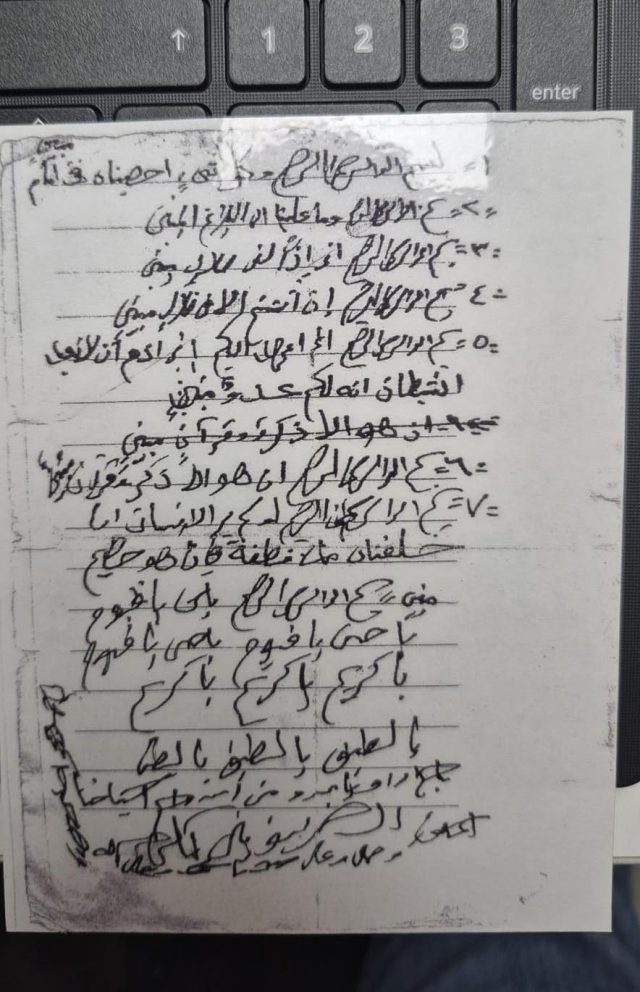 ↑ 1 2 3
enter
١= بسم الله الرحمن الرحيم وكل شيء احصيناه في امام
مبين
=٢= بسم الله الرحمن الرحيم وما علينا الا البلاغ المبين
=٣= بسم الله الرحمن الرحيم اني اذًا لفي ضلال مبين
=٤ بسم الله الرحمن الرحيم إن أنتم الا في ضلال مبين
=٥ بسم الله الرحمن الرحيم الم اعهد اليكم يا بني ادم أن لا تعبدوا
الشيطان انه لكم عدو مبين
ان هو الا ذكر وقرآن مبين
=٦= بسم الله الرحمن الرحيم ان هو الا ذكر وقرآن مبين
=٧= بسم الله الرحمن الرحيم اولم ير الإنسان انا
خلقناه من نطفة فإذا هو خصيم
مبين بسم الله الرحمن الرحيم يا حي يا قيوم
يا حي يا قيوم يا حي يا قيوم
يا كريم يا كريم يا كريم
يا لطيف يا لطيف يا لطيف